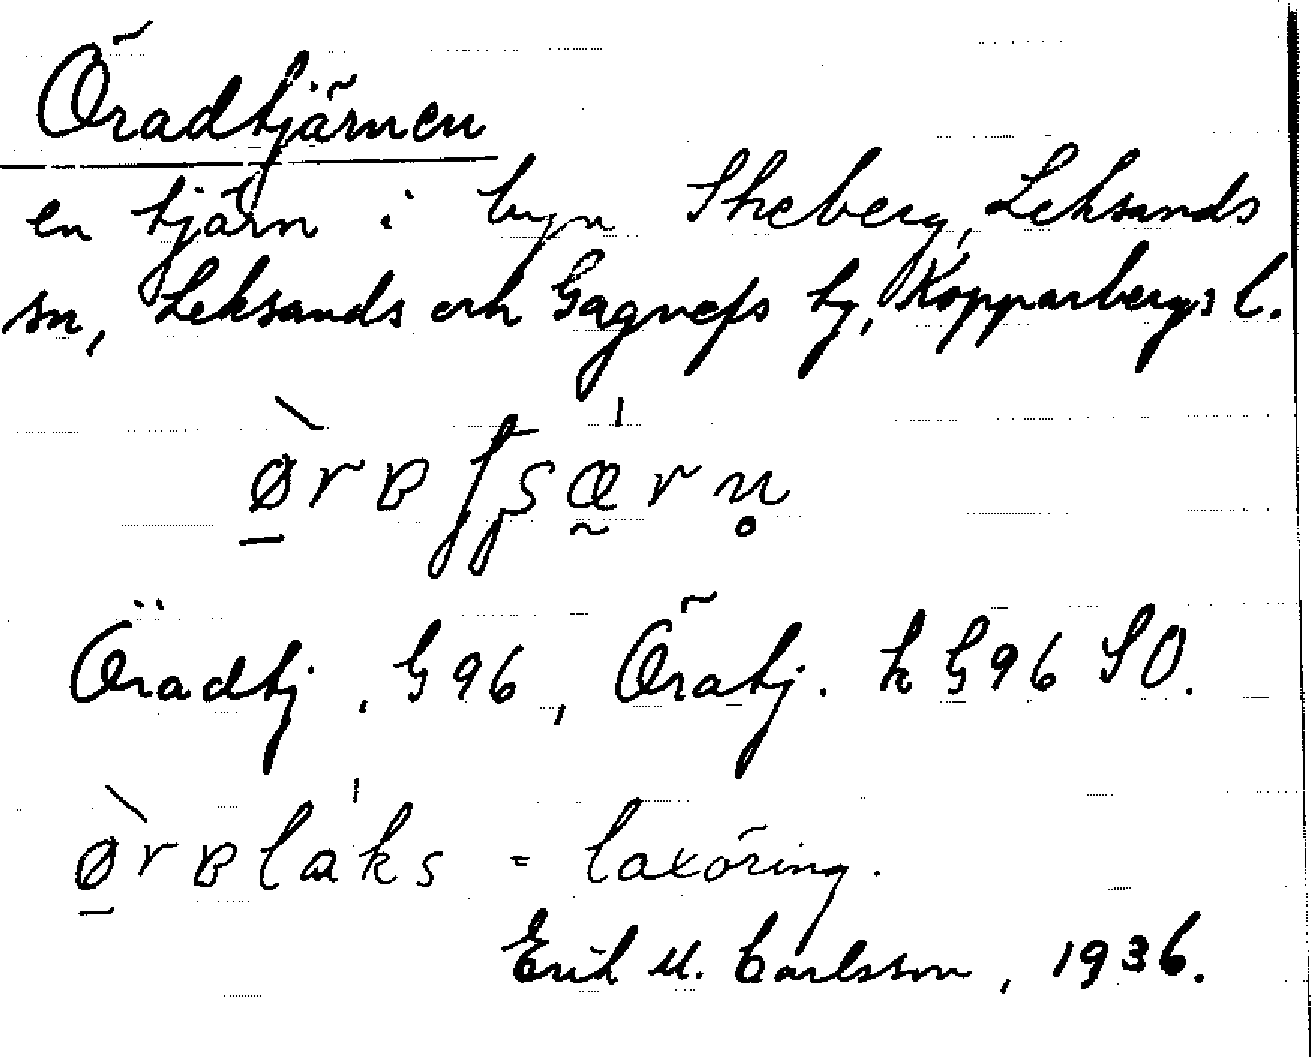 Öradtjärnen
en tjärn i byn Skeberg, Leksands
sn, Leksands och Gagnefs tg, Kopparbergs l.
Öradtj. G 96, Öratj. k G 96 SO.
= laxöring.
Erik M. Carlsson, 1936.